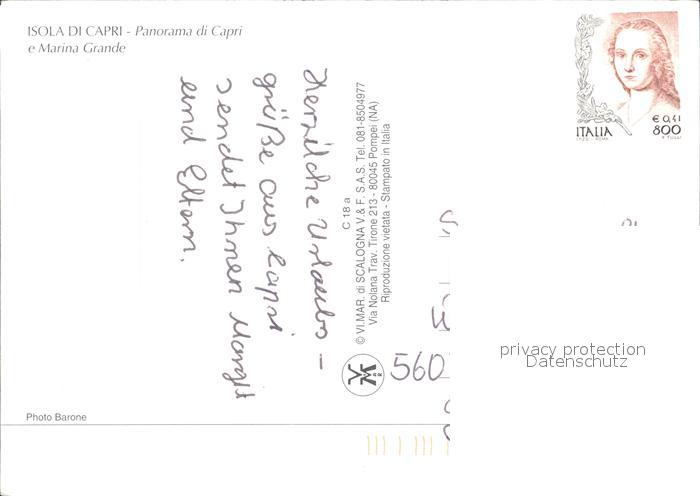 ISOLA DI CAPRI - Panorama di Capri
e Marina Grande
Herzliche Urlaubs –
grüße aus Capri
sendet Ihnen Margit
und Eltern.
C 18 a
© VI.MAR. di SCALOGNA V. & F. S.A.S. Tel. 081-8504977
Via Nolana Trav. Tirone 213 - 80045 Pompei (NA)
Riproduzione vietata - Stampato in Italia
€ 0,41
ITALIA 800
560
privacy protection
Datenschutz
Photo Barone